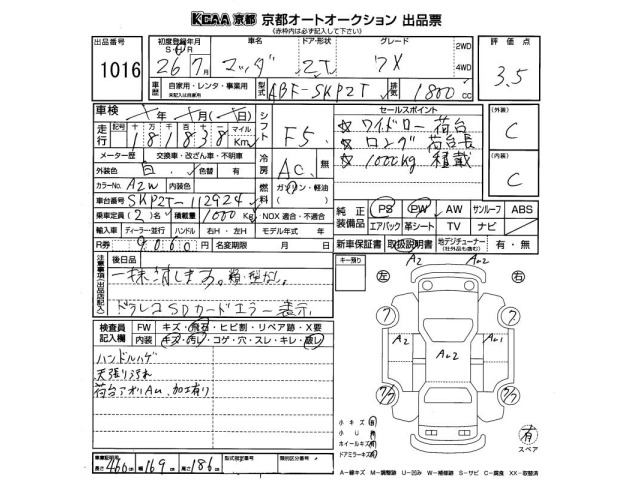 KCAA京都 京都オートオークション 出品票
(赤枠内は必ず記入して下さい)
出品番号 1016
初度登録年月 S・H 26年 7月
車名 マツダ
ドア・形状 2T
グレード DX
2WD
4WD
評価点 3.5
車歴 自家用・レンタ・事業用
型式 ABF-SKP2T
排気 1800 cc
車検 年 月(日)
シフト F5
走行 記号 十 万 千 百 十 一 マイル
181838 Km
セールスポイント
☆ ワイドロー 荷台
☆ ロング 荷台長
☆ 1000kg 積載
(外装) C
(内装) C
メーター歴 交換車・改ざん車・不明車
外装色 白 色替 有
冷房 AC 無
カラーNo. A2W 内装色
燃料 ガソリン・軽油
車台番号 SKP2T-112924
乗車定員(2)名 積載量 1000 Kg NOX 適合・不適合
輸入車 ディーラー・並行 ハンドル 右H・左H モデル年式 年
R券 9060 円 名変期限 月 日
純正装備 PS PW AW サンルーフ ABS
エアバック 革シート TV ナビ
新車保証書 取扱説明書 地デジチューナー(社外品も含む) 有・無
注意事項(出品店記入)
後日品
一抹消します。
ドラレコSDカードエラー表示
キー預り
左 右
A2 Au2
A2 Au2 Au1
検査員記入欄
FW キズ・飛石・ヒビ割・リペア跡・X要
内装 キズ・汚レ・コゲ・穴・スレ・キレ・破レ
ハンドルハゲ
天張り汚れ
荷台アオリAu、加工有り
小キズ 有
小U
ホイールキズ 有
ドアミラーキズ
有
スペア
車庫証明用 長さ 466 cm 幅 169 cm 高さ 186 cm
型式指定番号 類別区分番号
A−線キズ M−調整跡 U−凹み W−補修跡 S−サビ C−腐食 XX−取替済